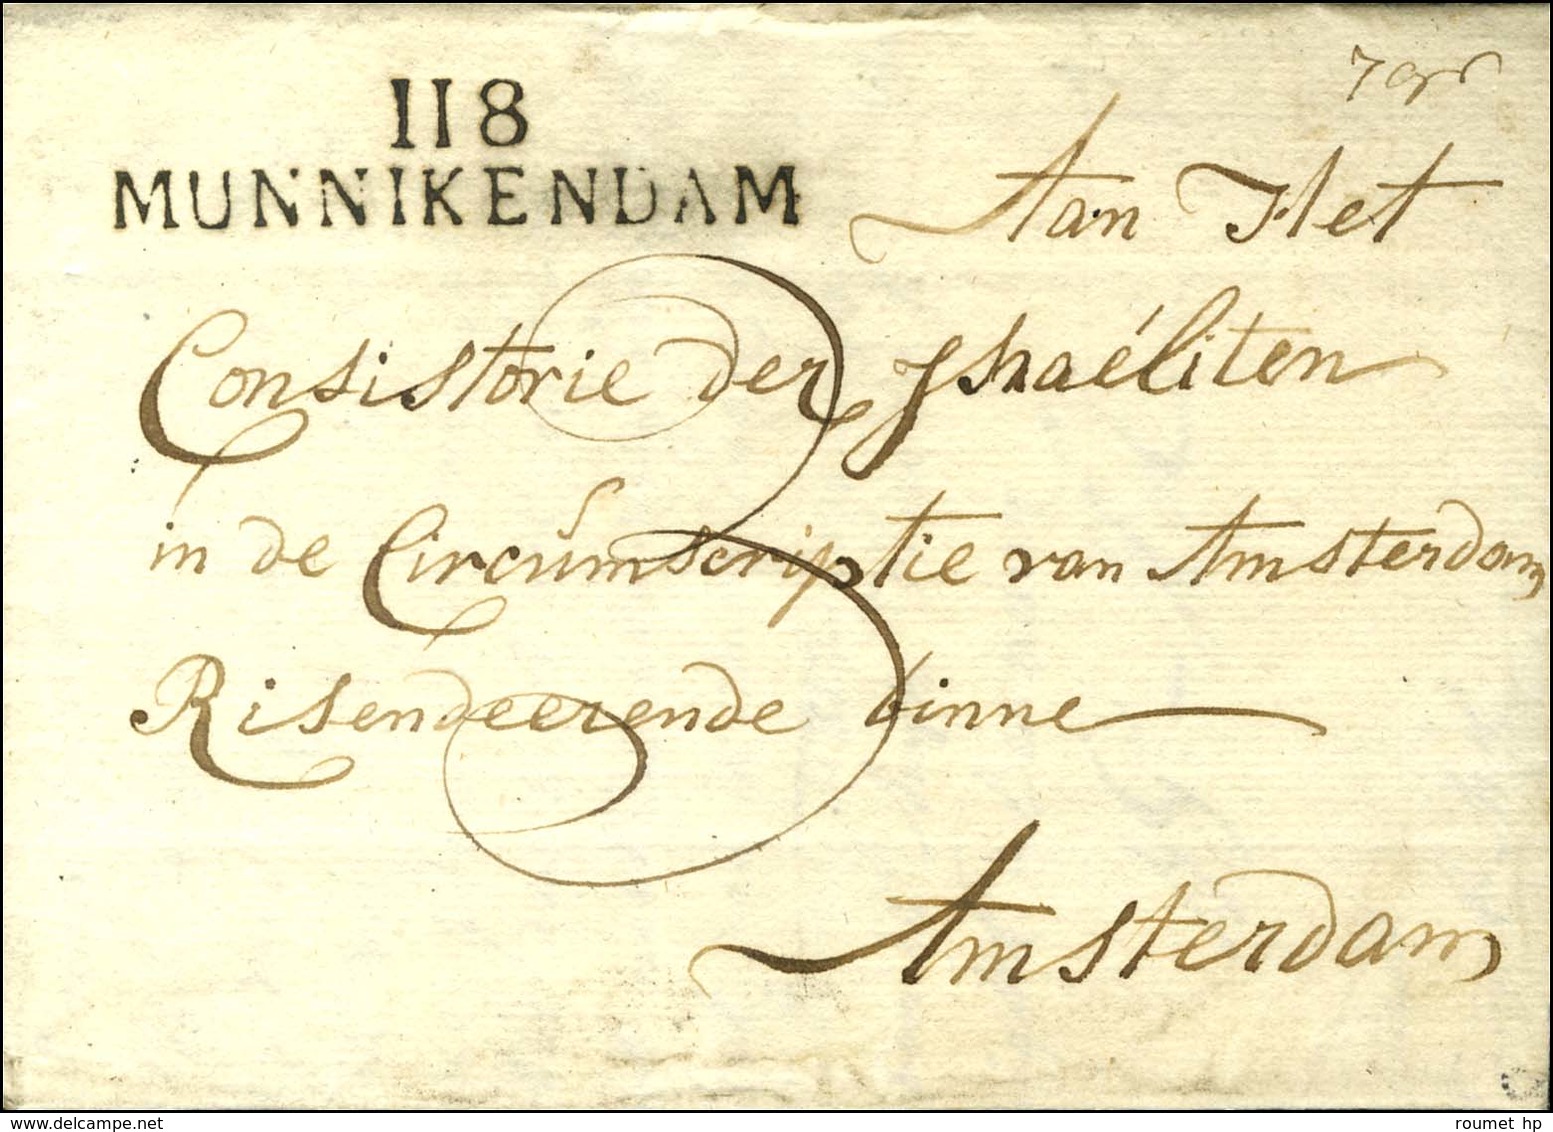 118
MUNNIKENDAM
Aan Het
Consistorie der Israéliten
in de Circumscriptie van Amsterdam
Risendeerende binne
Amsterdam
3
delcampe.net
roumet hp